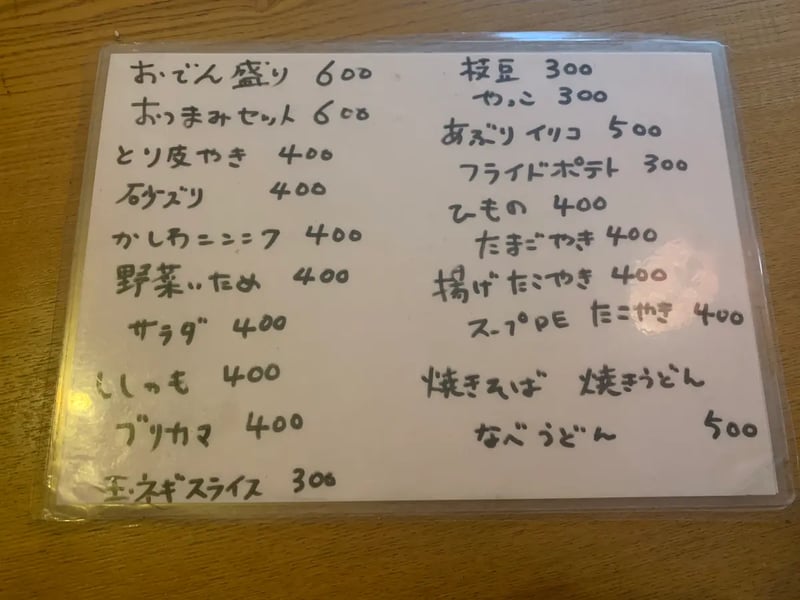 おでん盛り 600
おつまみセット 600
とり皮やき 400
砂ズリ 400
かしわニンニク 400
野菜いため 400
サラダ 400
ししゃも 400
ブリカマ 400
玉ネギスライス 300
枝豆 300
やっこ 300
あぶりイリコ 500
フライドポテト 300
ひもの 400
たまごやき 400
揚げたこやき 400
スープDE たこやき 400
焼きそば 焼きうどん
なべうどん 500